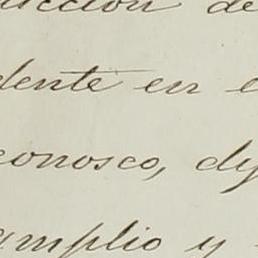 ucción de
dente en e
conosco, dy
amplio y